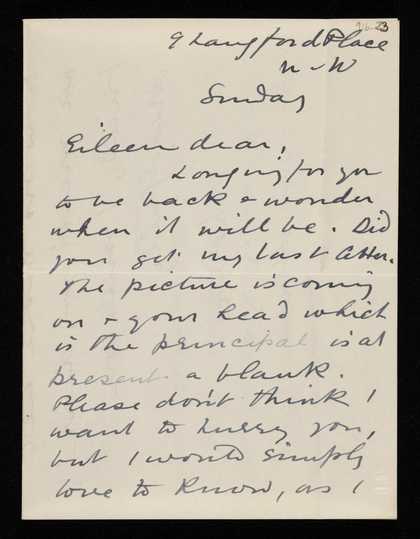 916-23
9 Langford Place
N-W
Sunday
Eileen dear,
Longing for you
to be back & wonder
when it will be. Did
you get my last letter.
The picture is coming
on & your head which
is the principal is at
present a blank.
Please don't think I
want to hurry you,
but I would simply
love to know, as I